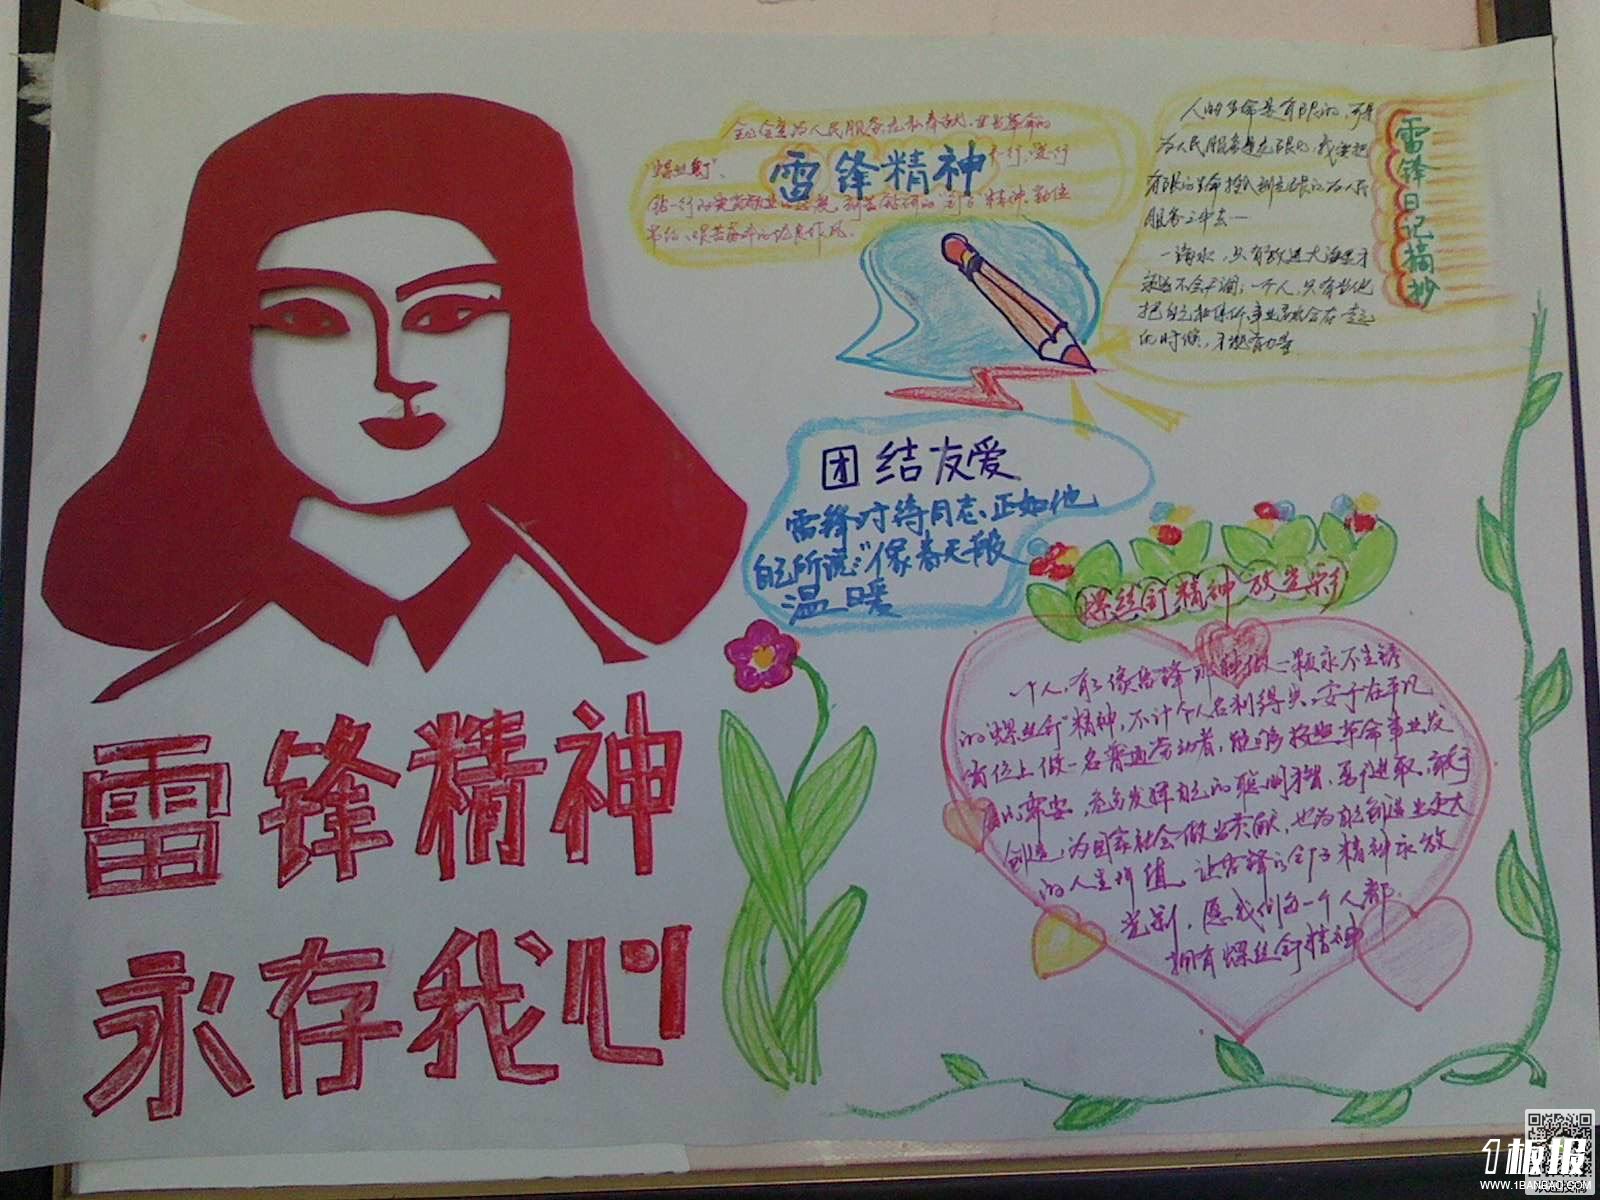 雷锋精神
永存我心
全心全意为人民服务,无私奉献,甘当革命的
"螺丝钉"、
雷锋精神
节约、艰苦奋斗的优良作风.
雷锋日记摘抄
人的生命是有限的,可是
为人民服务是无限的,我要把
有限的生命投入到无限的为人民
服务之中去…
一滴水,只有放进大海里才
永远不会干涸,一个人,只有当他
把自己和集体事业融合在一起
的时候,才能有力量
团结友爱
雷锋对待同志,正如他
自己所说:"像春天般
温暖
螺丝钉精神放光彩
一个人,有了像雷锋那种做一颗永不生锈
的"螺丝钉"精神,不计个人名利得失,安于在平凡
岗位上做一名普通劳动者,能够按照革命事业发
充分发挥自己的聪明才智,勇于进取,敢于
创造,为国家社会做出贡献,也为自己创造出更大
的人生价值,让雷锋的钉子精神永放
光彩,愿我们每一个人都
拥有螺丝钉精神
1板报
WWW.1BANBAO.COM